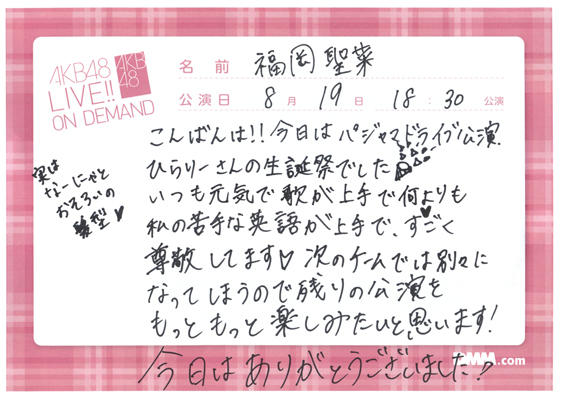 AKB48
LIVE!!
ON DEMAND
AKB
48
名前 福岡聖菜
公演日 8月19日 18:30公演
こんばんは!!今日はパジャマドライブ公演
ひらりーさんの生誕祭でした
いつも元気で歌が上手で何よりも
私の苦手な英語が上手で、すごく
尊敬してます♡次のチームでは別々に
なってしまうので残りの公演を
もっともっと楽しみたいと思います!
今日はありがとうございました♪
実は
なーにゃと
おそろいの
髪型♥
DMM.com